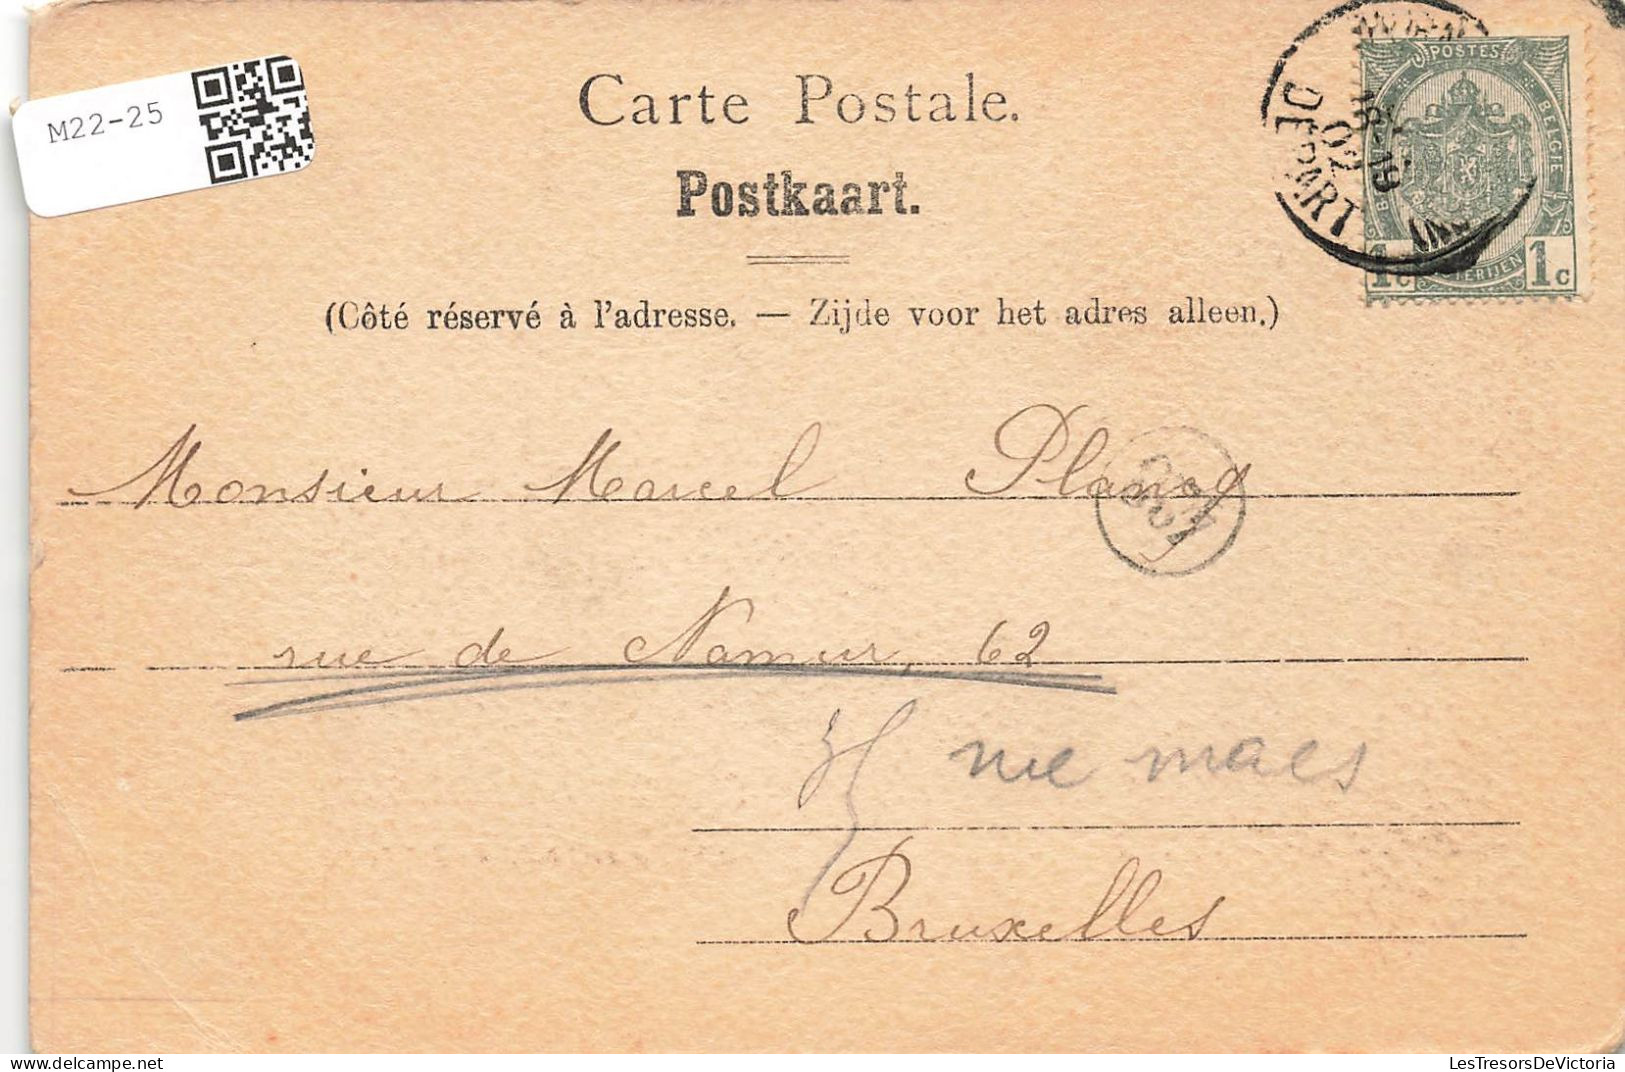 M22-25
Carte Postale.
Postkaart.
(Côté réservé à l'adresse. — Zijde voor het adres alleen.)
POSTES
BELGIE
1c
1c
DEPART
02
Monsieur Marcel Plancq
rue de Namur, 62
rue maes
Bruxelles
LesTresorsDeVictoria